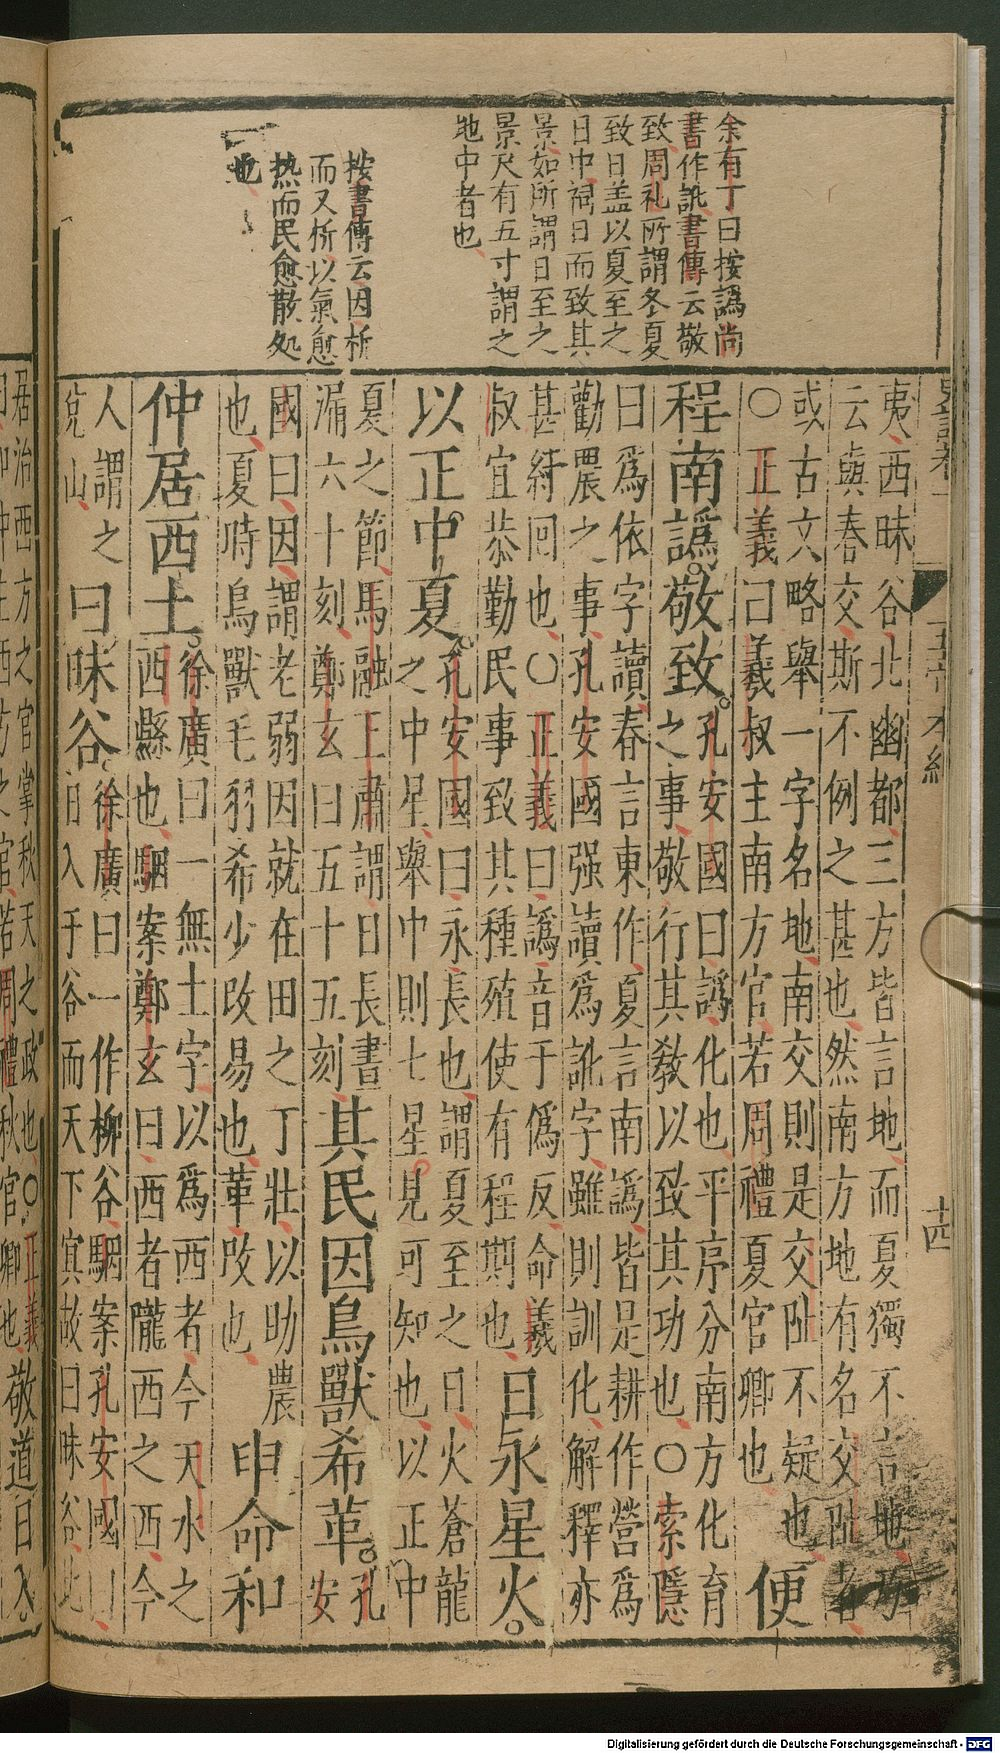 余有丁曰按譌尚
書作訛書傳云敬
致周礼所謂冬夏
致日盖以夏至之
日中祠日而致其
景如所謂日至之
景尺有五寸謂之
地中者也
按書傳云因析
而又析以氣愈
热而民愈散処
也
五帝本紀
十四
夷西昧谷北幽都三方皆言地而夏獨不言地乃
云與春交斯不例之甚也然南方地有名交阯者
或古文略舉一字名地南交則是交阯不疑也
〇正義曰羲叔主南方官若周禮夏官卿也
便
程南譌敬致
孔安國曰譌化也平序分南方化育
之事敬行其敎以致其功也〇索隱
曰爲依字讀春言東作夏言南譌皆是耕作營爲
勸農之事孔安國强讀爲訛字雖則訓化解釋亦
甚紆回也〇正義曰譌音于僞反命羲
叔宜恭勤民事致其種殖使有程期也
日永星火
以正中夏
孔安國曰永長也謂夏至之日火蒼龍
之中星舉中則七星見可知也以正中
夏之節馬融王肅謂日長晝
漏六十刻鄭玄曰五十五刻
其民因鳥獸希革
孔
安
國曰因謂老弱因就在田之丁壯以助農
也夏時鳥獸毛羽希少改易也革改也
申命和
仲居西土
徐廣曰一無土字以爲西者今天水之
西縣也駰案鄭玄曰西者隴西之西今
人謂之
兌山
曰昧谷
徐廣曰一作柳谷駰案孔安國曰
日入于谷而天下冥故曰昧谷此
居治西方之官掌秋天之政也〇正義
曰和仲主西方之官若周禮秋官卿也
敬道日入
Digitalisierung gefördert durch die Deutsche Forschungsgemeinschaft - DFG